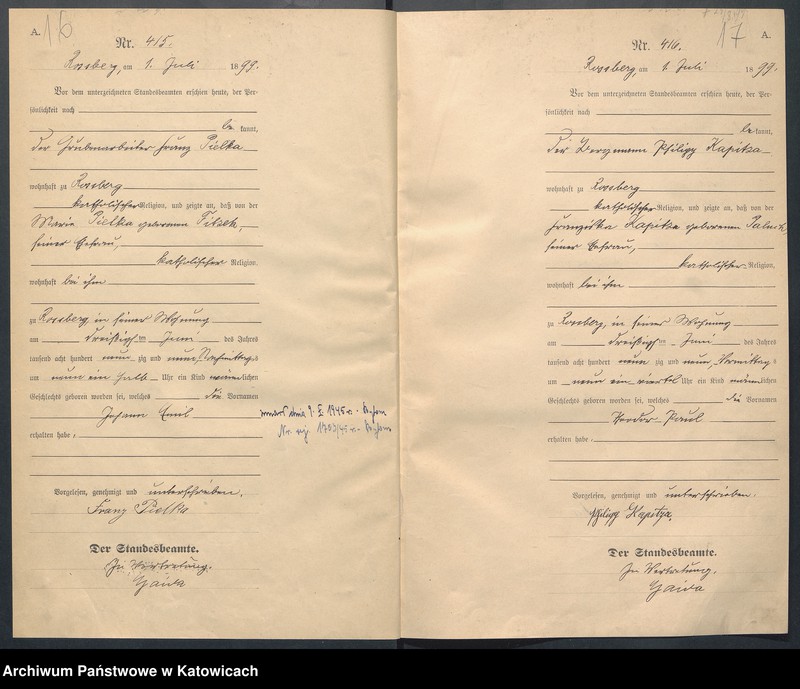 A.
16
Nr. 415.
Rossberg, am 1. Juli 1899.
Vor dem unterzeichneten Standesbeamten erschien heute, der Per-
sönlichkeit nach
be kannt,
der Grubenarbeiter Franz Pielka
wohnhaft zu Rossberg
katholischer Religion, und zeigte an, daß von der
Maria Pielka geborenen
seiner Ehefrau,
katholischer Religion,
wohnhaft bei ihm
zu Rossberg, in seiner Wohnung
am dreißigsten Juni des Jahres
tausend acht hundert neun zig und neun, Nachmittags
um neun ein halb Uhr ein Kind männlichen
Geschlechts geboren worden sei, welches die Vornamen
Johann Emil
erhalten habe.
Vorgelesen, genehmigt und unterschrieben.
Franz Pielka
Der Standesbeamte.
In Vertretung.
Gaida
zmarł dnia 9. X. 1945 r. - Bytom
Nr. rej. 1703/45 r. - Bytom
17
A.
Nr. 416.
Rossberg, am 1. Juli 1899.
Vor dem unterzeichneten Standesbeamten erschien heute, der Per-
sönlichkeit nach
be kannt,
der Bergmann Philipp Kapitza
wohnhaft zu Rossberg
katholischer Religion, und zeigte an, daß von der
Franziska Kapitza geborenen
seiner Ehefrau,
katholischer Religion,
wohnhaft bei ihm
zu Rossberg, in seiner Wohnung
am dreißigsten Juni des Jahres
tausend acht hundert neun zig und neun, Vormittags
um neun ein viertel Uhr ein Kind männlichen
Geschlechts geboren worden sei, welches die Vornamen
Theodor Paul
erhalten habe.
Vorgelesen, genehmigt und unterschrieben.
Philipp Kapitza.
Der Standesbeamte.
In Vertretung.
Gaida
Archiwum Państwowe w Katowicach